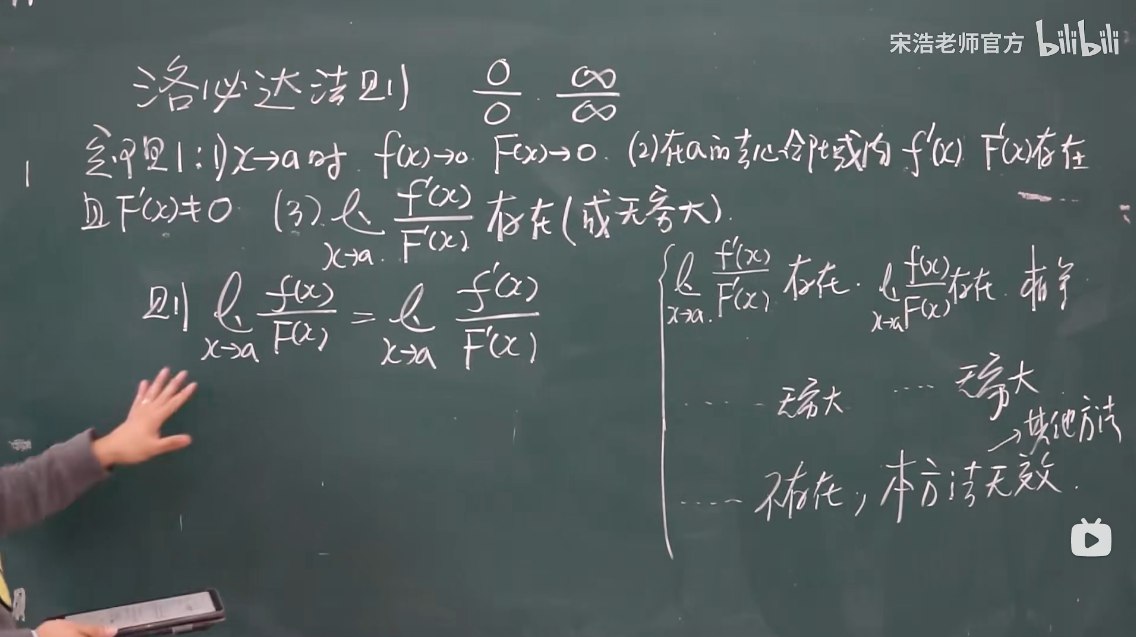 宋浩老师官方 bilibili
洛必达法则 0/0 . ∞/∞
定理1:1)x→a时 f(x)→0 F(x)→0. (2)在a的去心邻域内 f'(x) F'(x)存在
且F'(x)≠0 (3). lim x→a. f'(x)/F'(x) 存在(或无穷大).
则 lim x→a f(x)/F(x) = lim x→a f'(x)/F'(x)
lim x→a. f'(x)/F'(x) 存在. lim x→a f(x)/F(x) 存在. 相等
...... 无穷大 .... 无穷大
→其他方法
...... 不存在, 本方法无效.